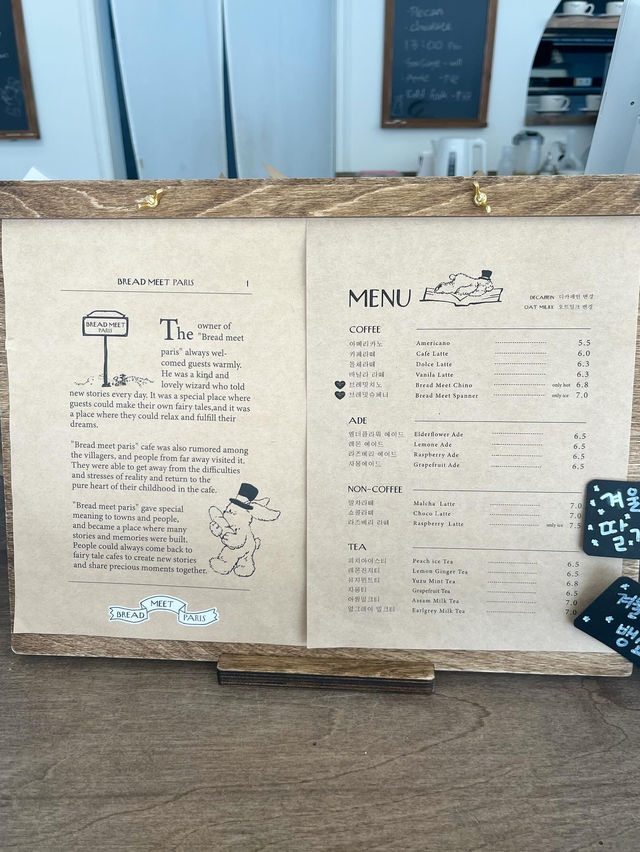 Pecan
17:00 Pm
BREAD MEET PARIS
1
BREAD MEET
PARIS
The owner of
"Bread meet
paris" always wel-
comed guests warmly.
He was a kind and
lovely wizard who told
new stories every day. It was a special place where
guests could make their own fairy tales,and it was
a place where they could relax and fulfill their
dreams.
"Bread meet paris" cafe was also rumored among
the villagers, and people from far away visited it.
They were able to get away from the difficulties
and stresses of reality and return to the
pure heart of their childhood in the cafe.
"Bread meet paris" gave special
meaning to towns and people,
and became a place where many
stories and memories were built.
People could always come back to
fairy tale cafes to create new stories
and share precious moments together.
BREAD MEET PARIS
MENU
DECAFFEIN 디카페인 변경
OAT MILK 오트밀크 변경
COFFEE
아메리카노 Americano 5.5
카페라떼 Cafe Latte 6.0
돌체라떼 Dolce Latte 6.3
바닐라 라떼 Vanila Latte 6.3
브레밋치노 Bread Meet Chino only hot 6.8
브레밋슈페너 Bread Meet Spanner only ice 7.0
ADE
엘더플라워 에이드 Elderflower Ade 6.5
레몬 에이드 Lemone Ade 6.5
라즈베리 에이드 Raspberry Ade 6.5
자몽에이드 Grapefruit Ade 6.5
NON-COFFEE
말차라떼 Malcha Latte 7.0
쇼콜라떼 Choco Latte 7.0
라즈베리 라떼 Raspberry Latte only ice 7.5
TEA
피치아이스티 Peach ice Tea 6.5
레몬진저티 Lemon Ginger Tea 6.5
유자민트티 Yuzu Mint Tea 6.8
자몽티 Grapefruit Tea 6.5
아쌈밀크티 Assam Milk Tea 7.0
얼그레이 밀크티 Earlgrey Milk Tea 7.0
겨울
딸기
겨울